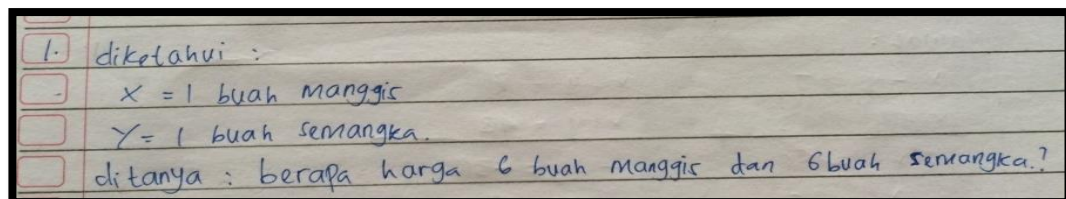 1. diketahui :
X = 1 buah manggis
Y = 1 buah semangka.
ditanya : berapa harga 6 buah manggis dan 6 buah semangka.?